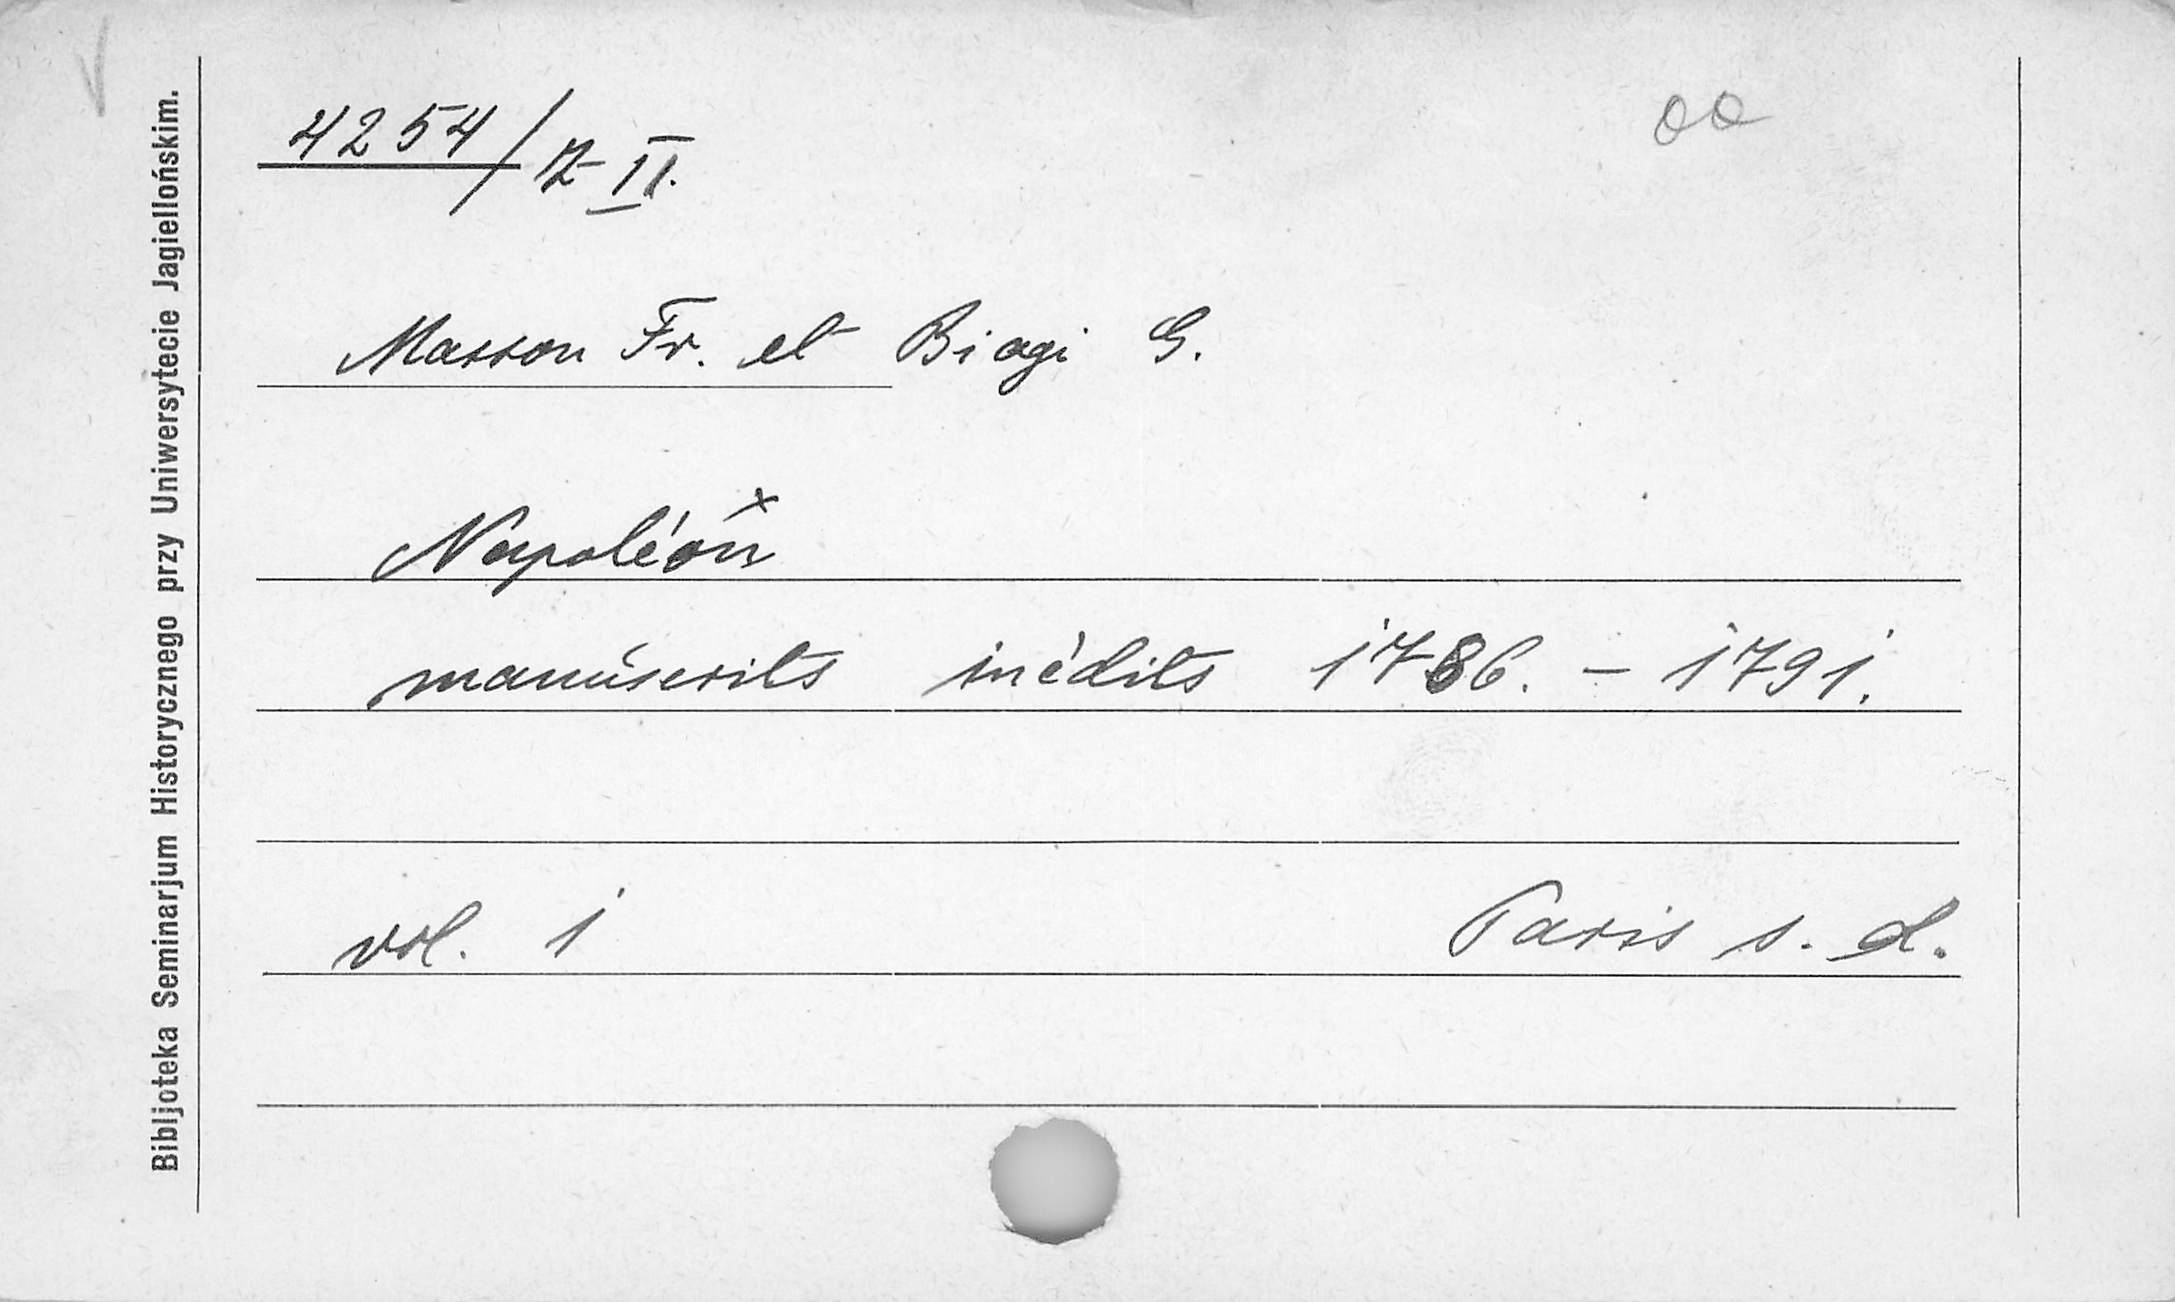 Bibljoteka Seminarjum Historycznego przy Uniwersytecie Jagiellońskim.
4254/Z II.
Masson Fr. et Biagi G.
Napoléon x
manuscrits inédits 1786. – 1791.
vol. 1 Paris s. d.